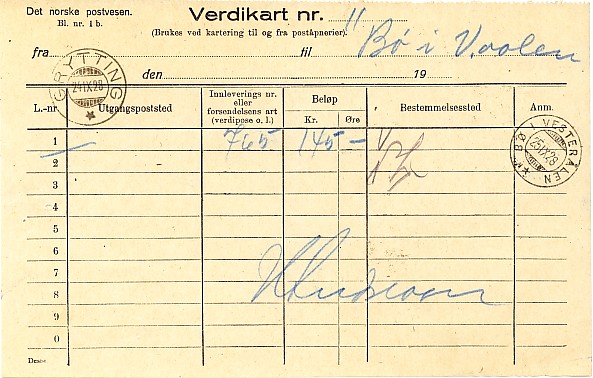 Det norske postvesen.
Bl. nr. 1 b.
Verdikart nr. 11
(Brukes ved kartering til og fra poståpnerier).
fra til Bø i V.aalen
den 19
GRYTTING
24 IX 28
L.-nr. Utgangspoststed Innleverings nr. eller forsendelsens art (verdipose o. l.) Beløp Kr. Øre Bestemmelsessted Anm.
1 765 145 –
2
3
4
5
6
7
8
9
0
BØ I VESTERÅLEN
25 IX 28